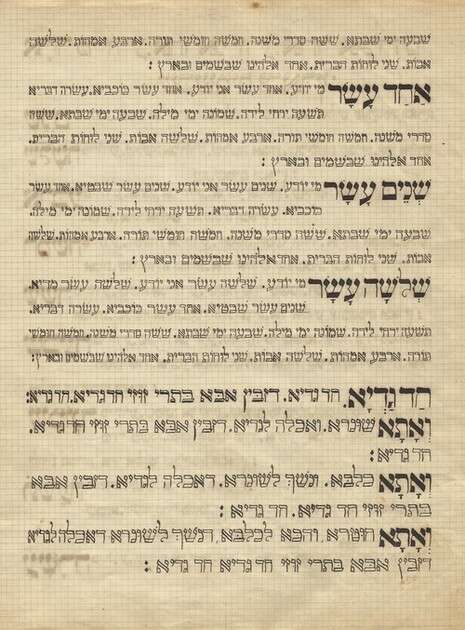 שבעה ימי שבתא. ששה סדרי משנה. חמשה חומשי תורה. ארבע אמהות. שלשה
אבות. שני לוחות הברית. אחד אלהינו שבשמים ובארץ :
אַחַד עָשָׂר מי יודע. אחד עשר אני יודע. אחד עשר כוכביא. עשרה דבריא
תשעה ירחי לידה. שמונה ימי מילה. שבעה ימי שבתא. ששה
סדרי משנה. חמשה חומשי תורה. ארבע אמהות. שלשה אבות. שני לוחות הברית.
אחד אלהינו שבשמים ובארץ :
שְׁנֵים עָשָׂר מי יודע. שנים עשר אני יודע. שנים עשר שבטיא. אחד עשר
כוכביא. עשרה דבריא. תשעה ירחי לידה. שמונה ימי מילה.
שבעה ימי שבתא. ששה סדרי משנה. חמשה חומשי תורה. ארבע אמהות. שלשה
אבות. שני לוחות הברית. אחד אלהינו שבשמים ובארץ :
שְׁלֹשָׁה עָשָׂר מי יודע. שלשה עשר אני יודע. שלשה עשר מדיא.
שנים עשר שבטיא. אחד עשר כוכביא. עשרה דבריא.
תשעה ירחי לידה. שמונה ימי מילה. שבעה ימי שבתא. ששה סדרי משנה. חמשה חומשי
תורה. ארבע אמהות. שלשה אבות. שני לוחות הברית. אחד אלהינו שבשמים ובארץ :
חַד גַּדְיָא. חד גדיא. דזבין אבא בתרי זוזי חד גדיא. חד גדיא :
וְאָתָא שונרא. ואכלה לגדיא. דזבין אבא בתרי זוזי חד גדיא.
חד גדיא :
וְאָתָא כלבא. ונשך לשונרא. דאכלה לגדיא. דזבין אבא
בתרי זוזי חד גדיא. חד גדיא :
וְאָתָא חוטרא. והכא לכלבא. דנשך לשונרא דאכלה לגדיא
דזבין אבא בתרי זוזי חד גדיא חד גדיא :